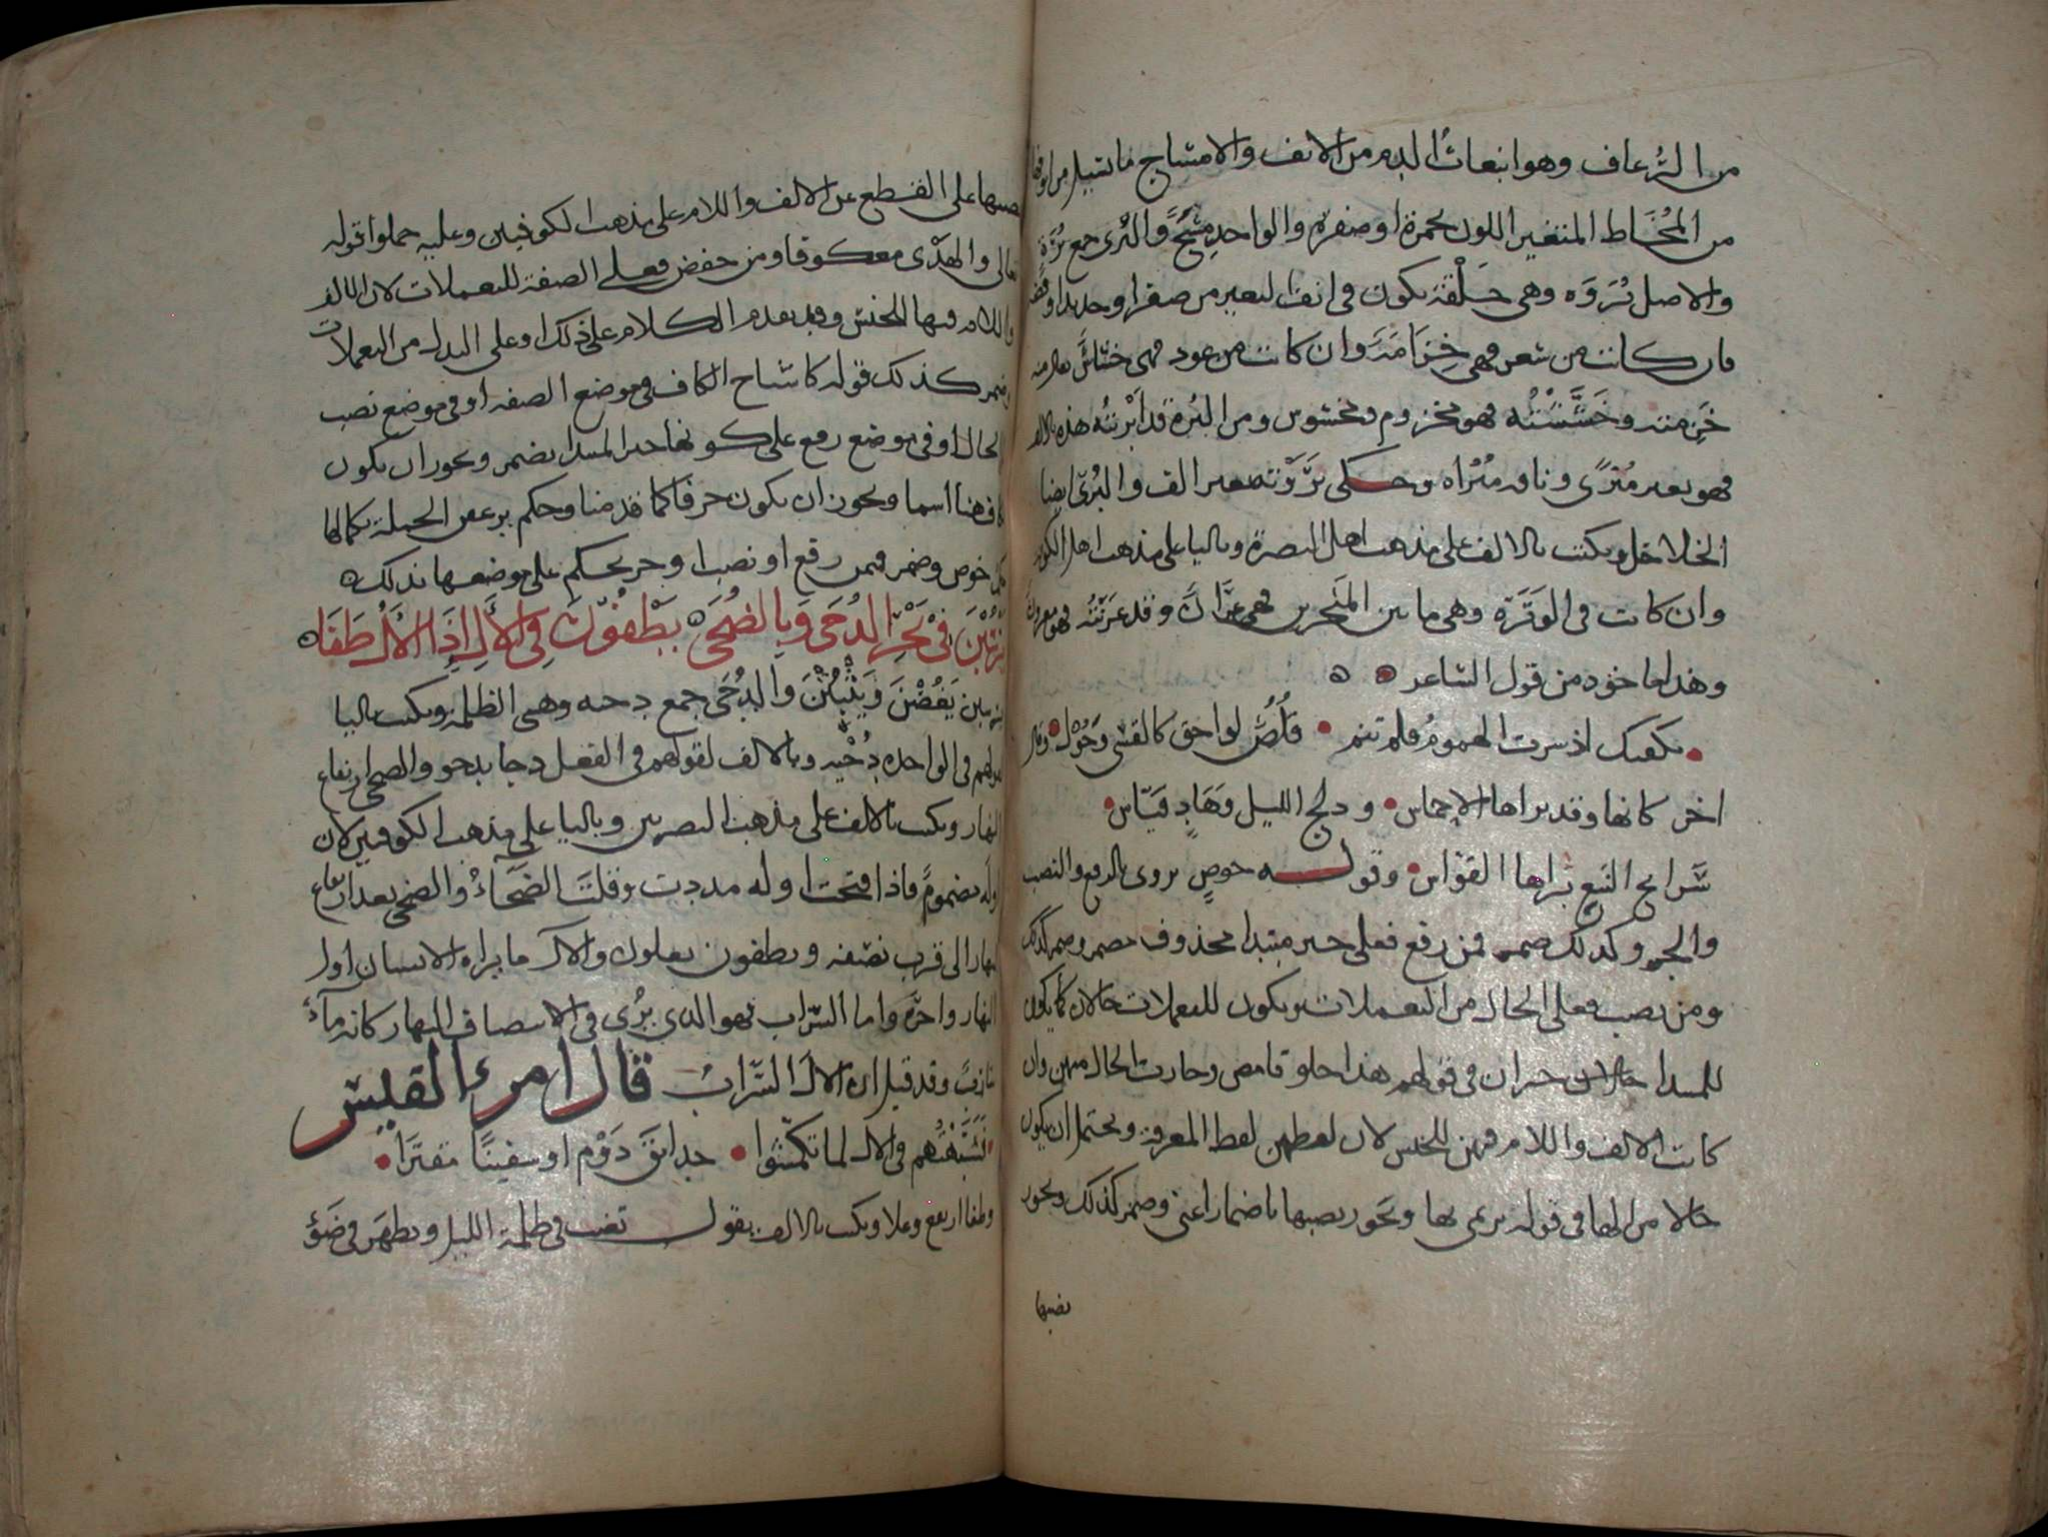 من الرُعاف وهو انبعاث الدم من الانف والامشاج ما تسيل من
من المُخَاط المتغير اللون بحمرة او صفرة والواحد مشج والبُرى جمع بُرَة
والاصل بُرَوَه وهي حَلْقة تكون في انف البعير من صفر او حديد او فضة
فان كانت من شعر فهي خِزَامَة وان كانت من عود فهي خشاش يقال منه
خَزمته وخَشَشْتُه فهو مخزوم ومخشوش ومن البُرة قد ابْرَيتُه هذه بالالف
فهو بعير مُبْرًى وناقه مُبْراه وحكى بَرَوْته بغير الف والبُرى ايضا
الخلاخل ويكتب بالالف على مذهب اهل البصرة وباليا على مذهب اهل الكوفة
وان كانت في الوَتَرَة وهي ما بين المَنْخرين فهي عِرَانٌ وقد عَرَنْتُه فهو معرون
وهذا ماخوذ من قول الشاعر
يكفيك اذ سرت الهمومُ فلم تنم • قُلُصٌ لواحق كالقسي وَحُوْل • وقال
اخر كانها وقد براها الاخماس • ودلج الليل وَهَادٍ قيَّاس •
شرايج النبع براها القوَّاس • وقوله خوصٍ يروى بالرفع والنصب
والجر وكذلك ضمر فمن رفع فعلى خبر مبتدا محذوف مضمر وضمر كذلك
ومن نصب فعلى الحال من اليعملات ويكون لليعملات حالان كما يكون
للمبتدا خبران في قولهم هذا حلو حامض وجازت الحال منهن وان
كانت الالف واللام فيهن للجنس لان لفظهن لفظ المعرفة ويحتمل ان يكون
حالا من الها في قوله يرمى بها ويجوز نصبها باضمار اعني وضمر كذلك ويجوز
نصبها
نصبها على القطع عن الالف واللام على مذهب الكوفيين وعليه حملوا قوله
تعالى والهدْى معكوفا ومن خفض فعلى الصفة لليعملات لان الالف
واللام فيها للجنس وقد تقدم الكلام على ذلك او على البدل من اليعملات
وضمر كذلك قوله كاشباح الكاف في موضع الصفه او في موضع نصب
الحال او في موضع رفع على كونها خبر المبتدا بضمر ويجوز ان يكون
كاف هنا اسما ويجوز ان يكون حرفا كما قدمنا وحكم يرعفن الجملة بكمالها
حكم خوص وضمر فمن رفع او نصب او جر يحكم على موضعها بذلك
يَرْسُبْنَ فيْ بَحْرِ الدُجَى وَبِالضُحَى يَطْفُوْنَ فِي الآلِ اِذَا الآلُ طَفَا
يرسبن يَغُصْنَ وَيَثْبُتْنَ والدُجَى جمع دجيه وهي الظلمة ويكتب باليا
لقولهم في الواحده دُجْيه وبالالف لقولهم في الفعل دجا يدجو والضحى ارتفاع
النهار ويكتب بالالف على مذهب البصريين وباليا على مذهب الكوفيين لان
اولَه مضمومٌ فاذا فتحت اوله مددت وقلت الضَحَآءُ والضحى بعد ارتفاع
النهار الى قرب نصْفه ويطفون يعلون والآل ما يراه الانسان اول
النهار واخرَه واما السَّراب فهو الذي يرُى في انتصاف النهار كانه مآءٌ
جاربٌ وقد قيل ان الآلَ السَّرابُ قال امرء القيس
فَشَبَّهْتُهم في الآل لما تكمّشوا • حدائق دَوْم او سفينًا مقيَّرا •
وطفا ارتفع وعلا ويكتب بالالف يقول تغيب في ظلمة الليل وتظهَر في ضَوْء